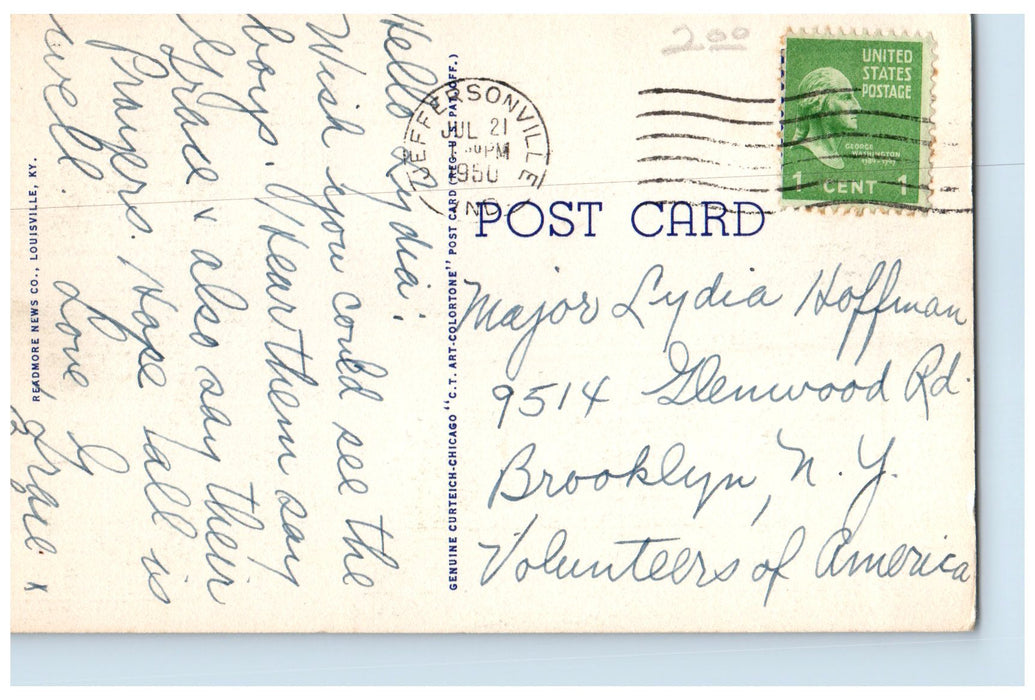 Hello Lydia:
Wish you could see the
boys. Hear them say
Grace & also say their
Prayers. Hope all is
well.
Love
READMORE NEWS CO., LOUISVILLE, KY.
GENUINE CURTEICH-CHICAGO "C.T. ART-COLORTONE" POST CARD (REG. U.S. PAT. OFF.)
JEFFERSONVILLE
JUL 21
PM
1950
IND.
2.00
UNITED
STATES
POSTAGE
GEORGE
WASHINGTON
1 CENT 1
POST CARD
Major Lydia Hoffman
9514 Glenwood Rd.
Brooklyn, N.Y.
Volunteers of America